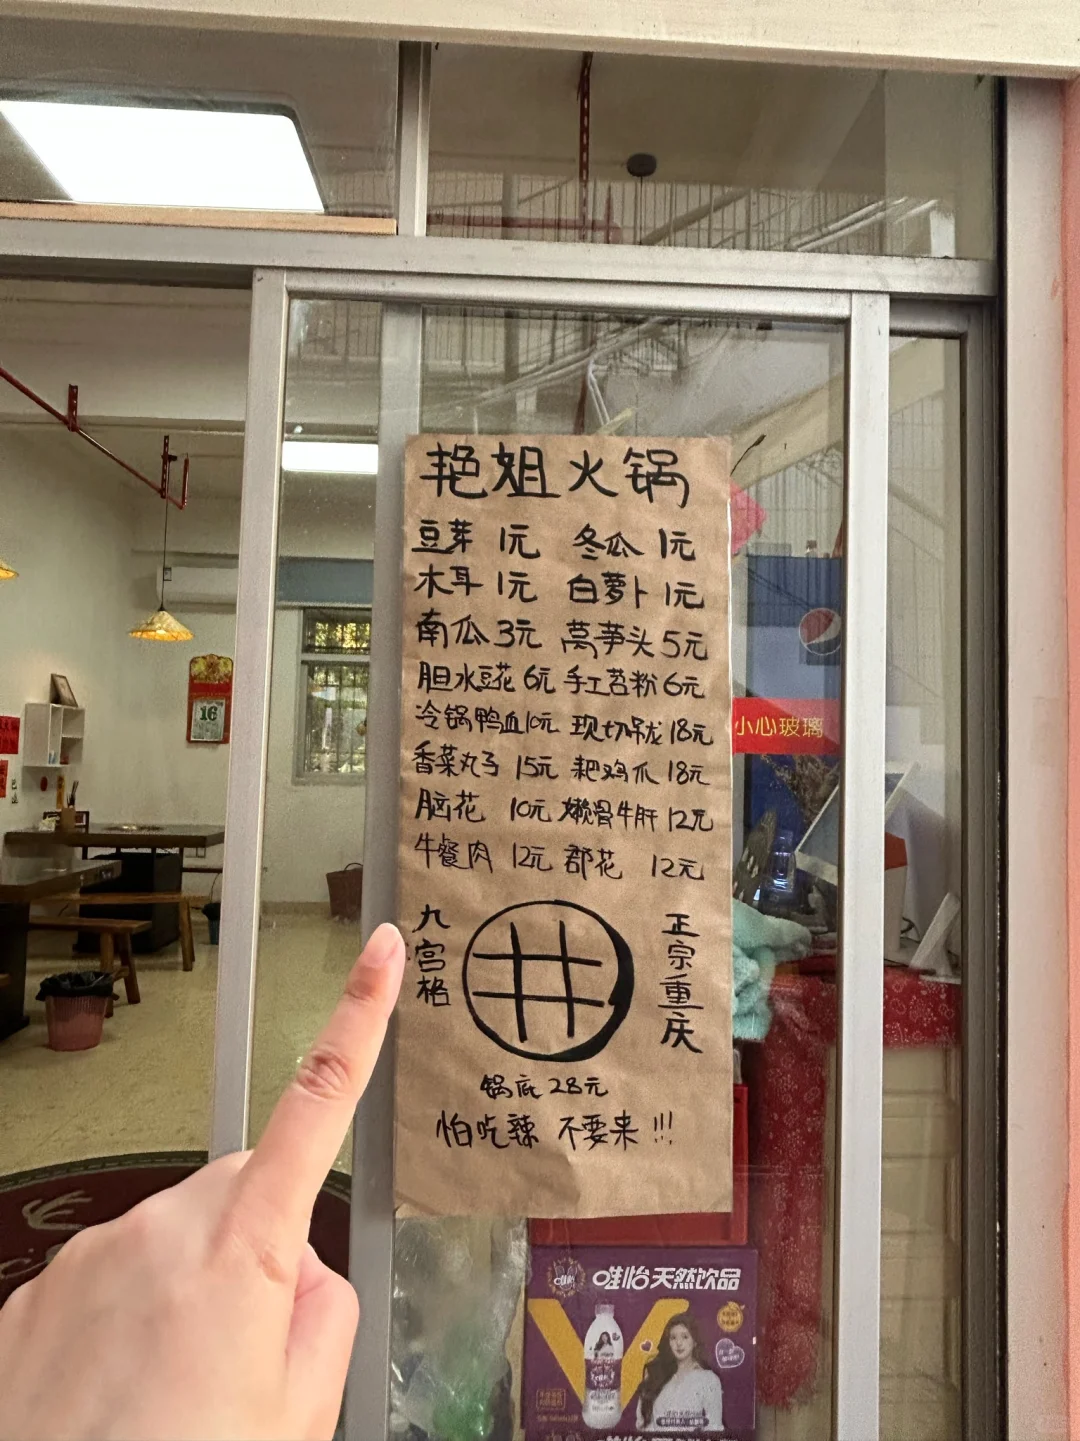 艳姐火锅
豆芽 1元 冬瓜 1元
木耳 1元 白萝卜 1元
南瓜 3元 莴笋头 5元
胆水豆花 6元 手工苕粉 6元
冷锅鸭血 10元 现切吼龙 18元
香菜丸子 15元 耙鸡爪 18元
脑花 10元 嫩骨牛肝 12元
牛餐肉 12元 郡花 12元
九宫格
正宗重庆
锅底 28元
怕吃辣 不要来!!!
小心玻璃
16
唯怡天然饮品
唯怡